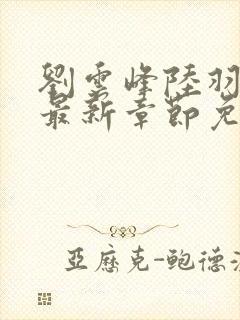 劉雲峰陸羽
最新章節免
亞歷克-鮑德溫